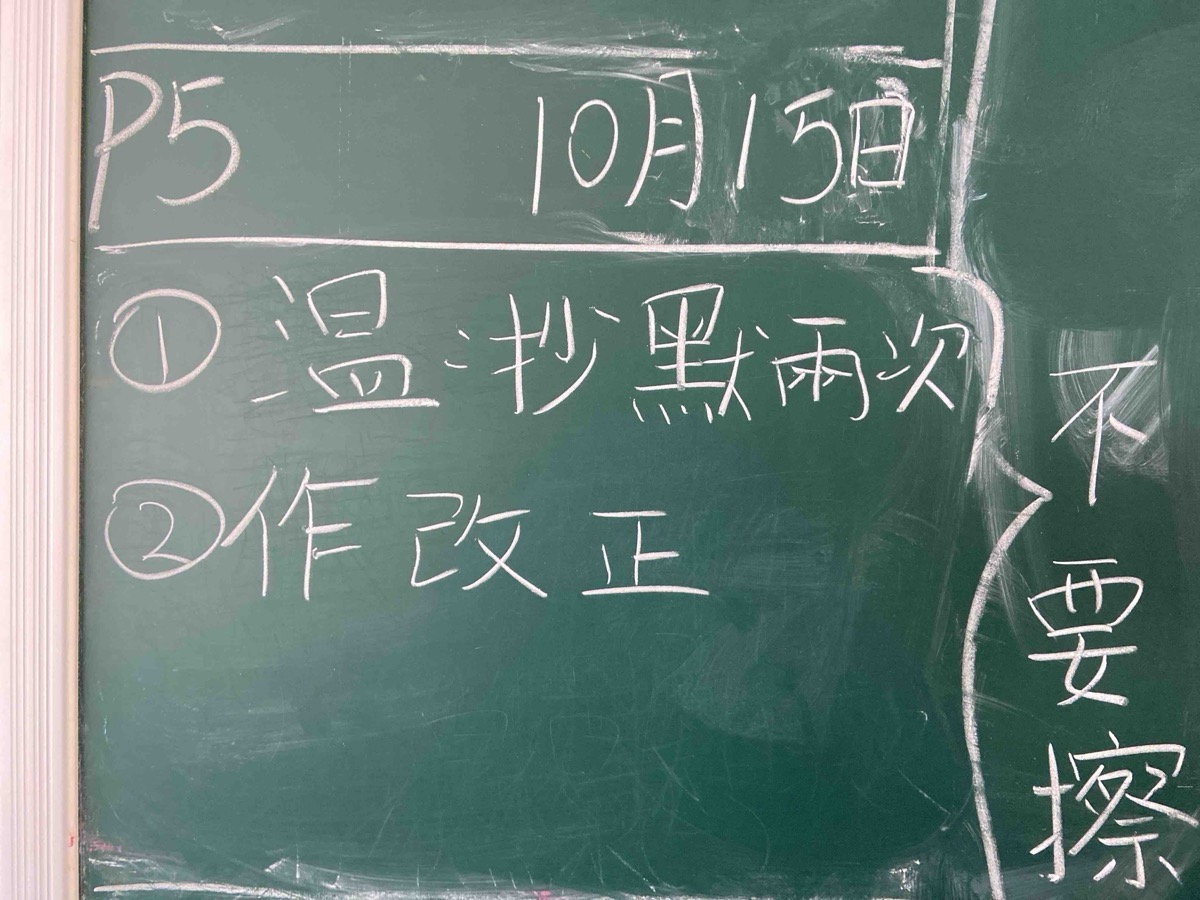 P5 10月15日
① 温:抄默兩次
② 作改正
不要擦